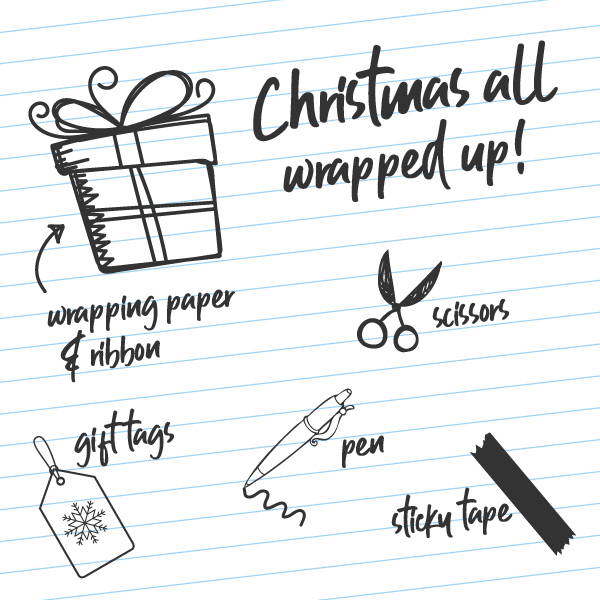 Christmas all
wrapped up!
wrapping paper
& ribbon
scissors
gift tags
pen
sticky tape